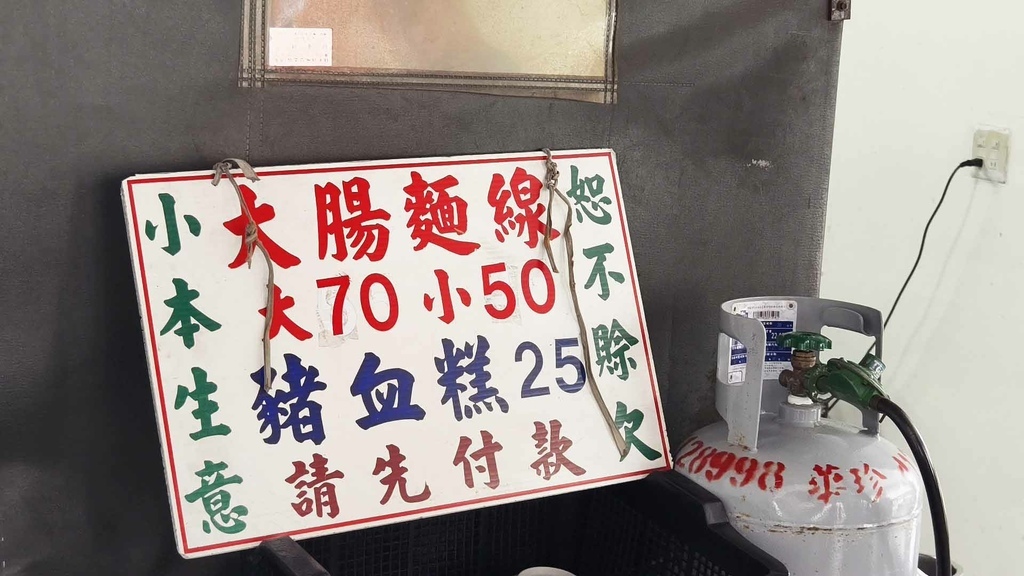 大腸麵線
大70 小50
豬血糕25
請先付款
小本生意
恕不賒欠
28998